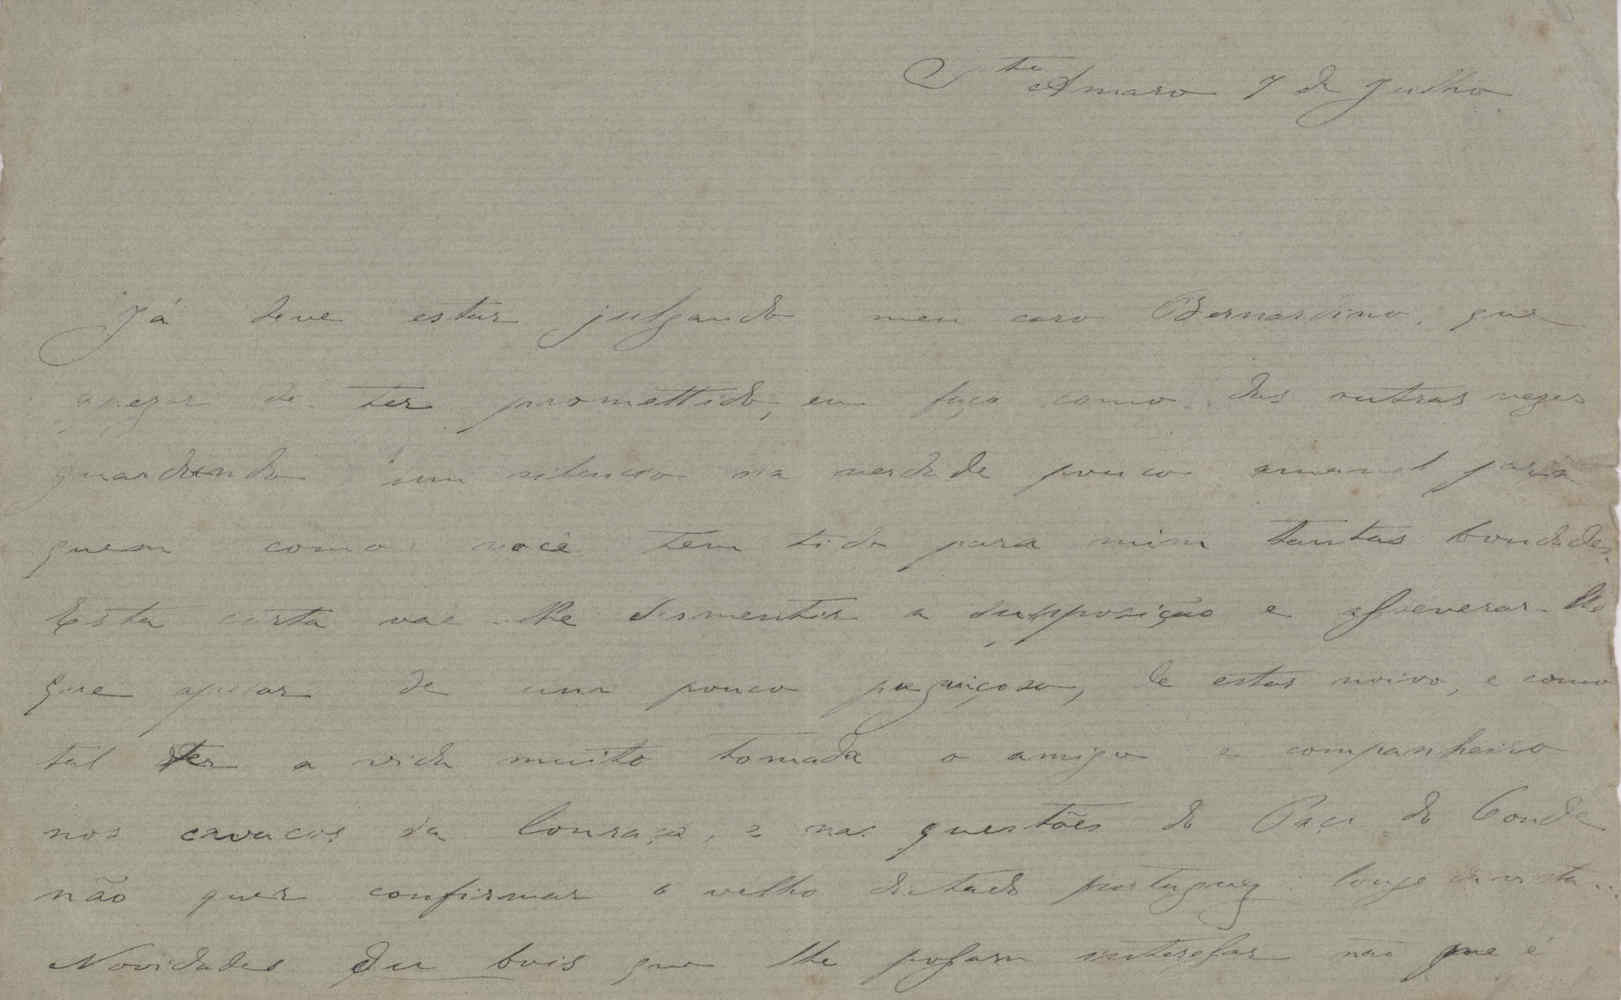 Sto Amaro 7 de Julho
Já deve estar julgando meu caro Bernardino, que
apezar de ter promettido, eu faço como das outras vezes
guardando um silencio na verdade pouco amavel para
quem como você tem tido para mim tantas bondades.
Esta carta vae-lhe desmentir a supposição e asseverar-lhe
que apesar de um pouco preguiçoso, de estar noivo, e como
tal ter a vida muito tomada o amigo e companheiro
nos cavacos da Louraça, e nas questões do Paço do Conde
não quer confirmar o velho dictado portuguez: longe da vista..
Novidades du bois que lhe possam interessar não me é